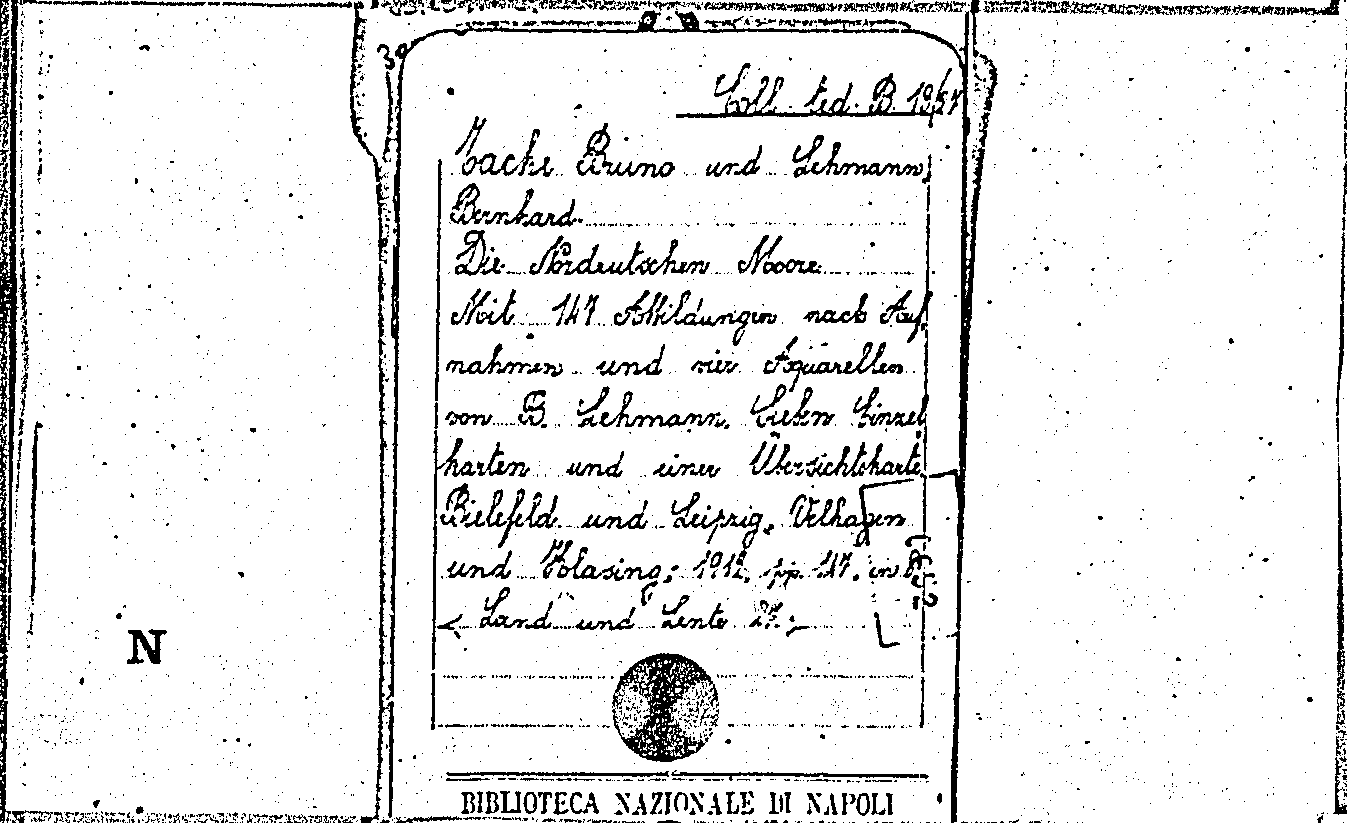 Coll. ted. B. 19/57
Tacke Bruno und Lehmann,
Bernhard.
Die Nordeutschen Moore
Mit 147 Abbildungen nach Auf
nahmen und vier Aquarellen
von B. Lehmann, Einzel
karten und einer Übersichtskarte
Bielefeld und Leipzig, Velhagen
und Klasing, 1912, pp. 147. in 8°
< Land und Leute 27. >
N
BIBLIOTECA NAZIONALE DI NAPOLI